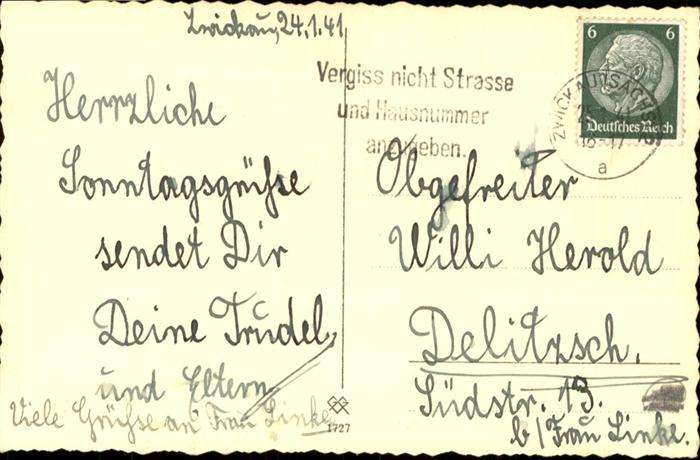 Zwickau, 24.1.41
Herrzliche
Sonntagsgrüße
sendet Dir
Deine Trudel,
und Eltern
Viele Grüße an Frau Linke
1727
Vergiss nicht Strasse
und Hausnummer
anzugeben.
6 6
Deutsches Reich
a
Obgefreiter
Willi Herold
Delitzsch.
Südstr. 19.
b/Frau Linke.